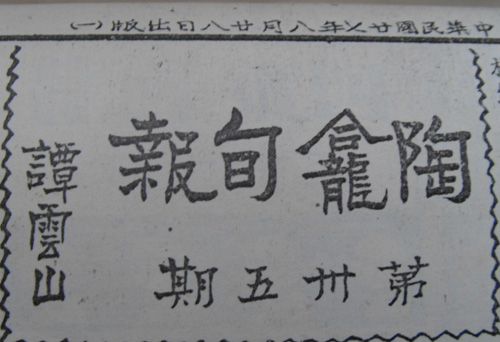 中華民國廿乂年八月廿八日出版(一)
陶龕旬報
第卅五期
譚雲山